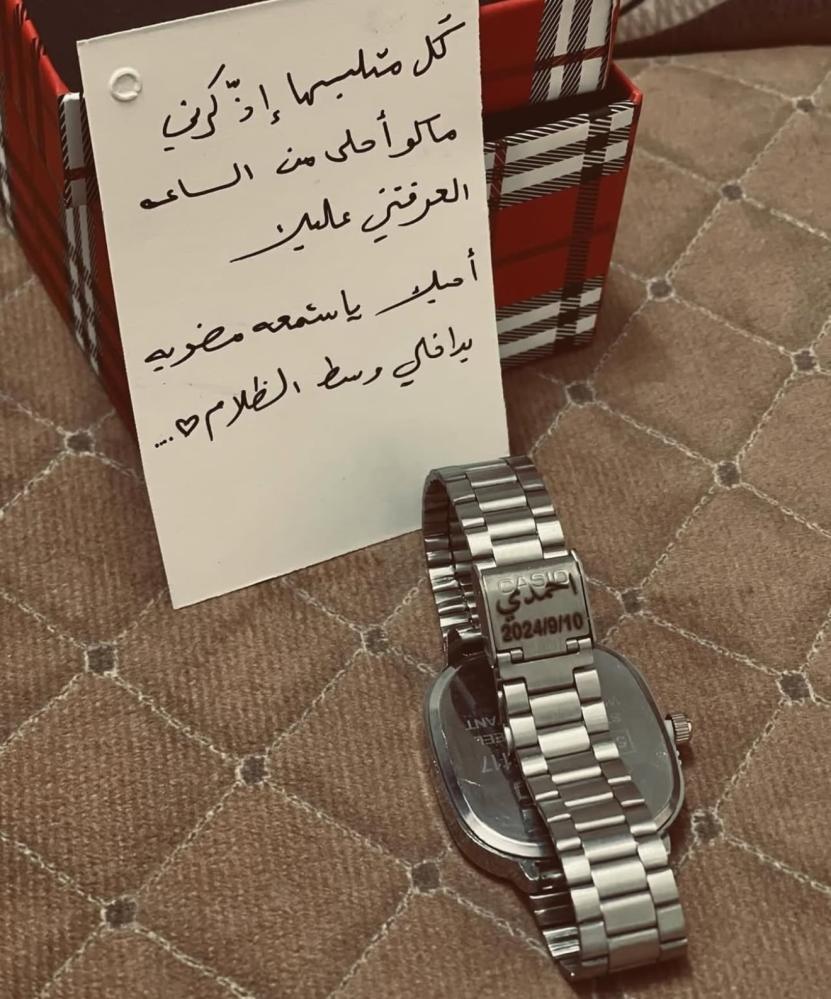 كل متلبسها إذّكرني
ماكو أحلى من الساعه
العرفتني عليك
أحبك ياشمعه مضويه
بداخلي وسط الظلام ♡...
CASIO
احمدي
2024/9/10